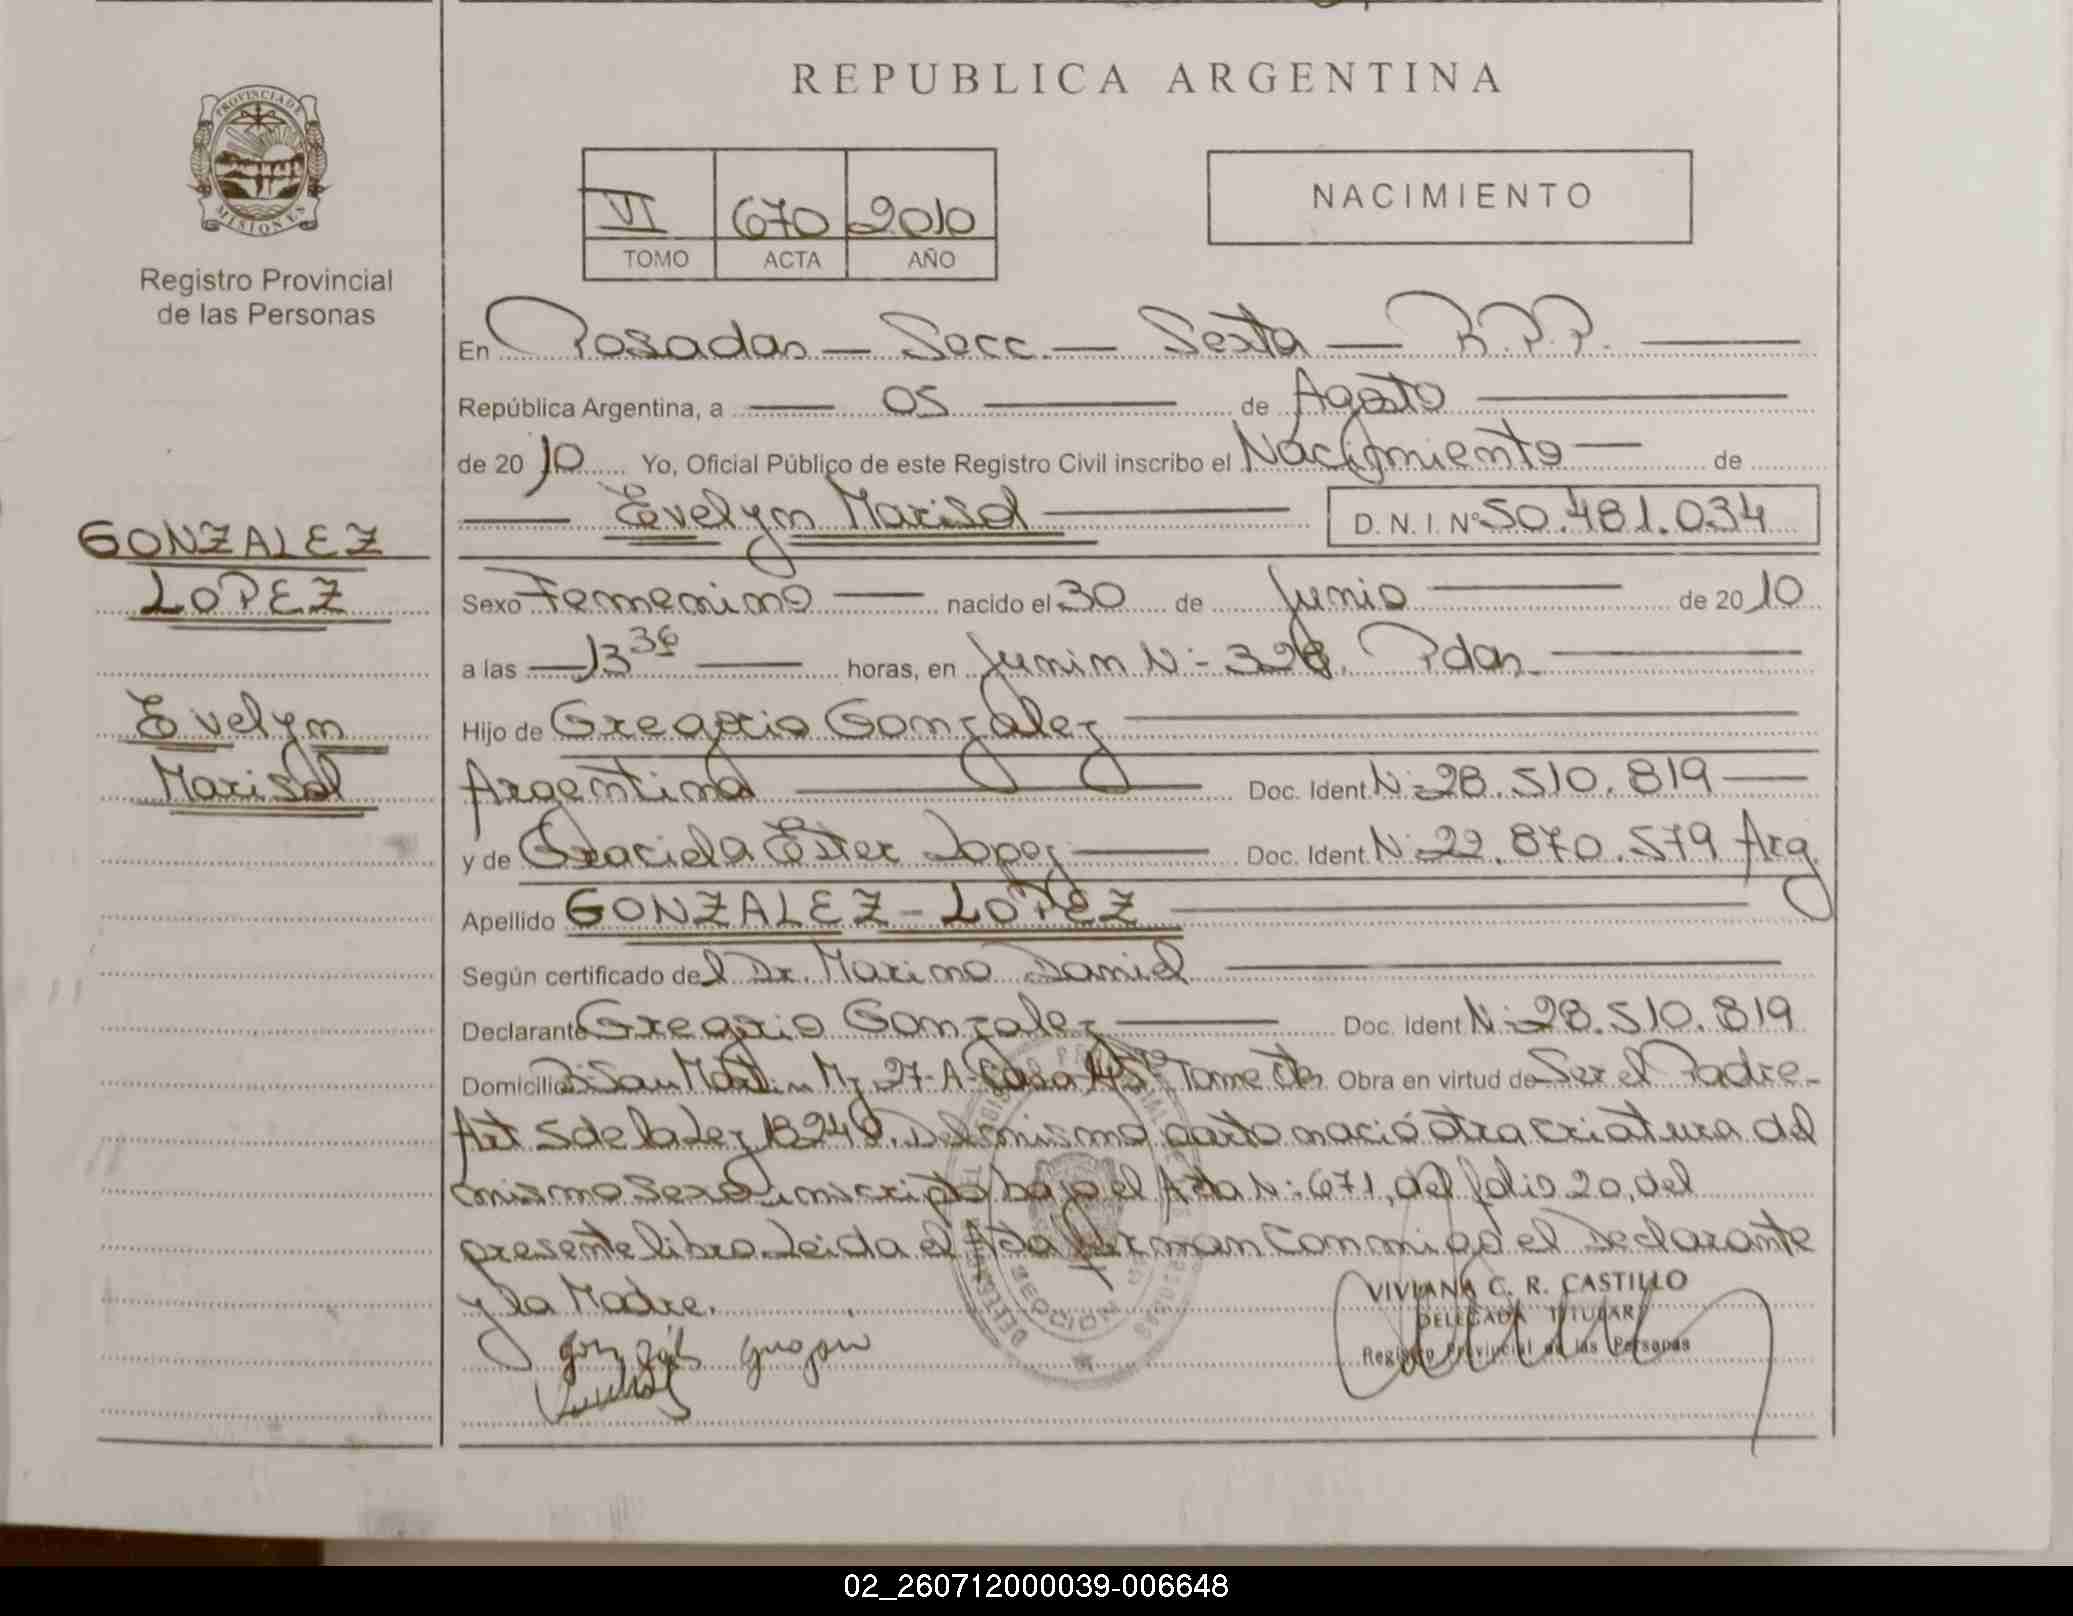 REPUBLICA ARGENTINA
PROVINCIA DE
MISIONES
Registro Provincial
de las Personas
VI 670 2010
TOMO ACTA AÑO
NACIMIENTO
GONZALEZ
LOPEZ
Evelyn
Marisol
En Posadas — Secc. — Sexta — R.P.P. —
República Argentina, a — 05 — de Agosto —
de 2010 Yo, Oficial Público de este Registro Civil inscribo el Nacimiento — de
— Evelyn Marisol — D. N. I. Nº 50.481.034
Sexo Femenino — nacido el 30 de Junio — de 2010
a las — 13 36 — horas, en Junin N: Pdas. —
Hijo de Gregorio Gonzalez —
Argentina — Doc. Ident. N: 28.510.819 —
y de Graciela Ester Lopez — Doc. Ident. N: 22.870.579 Arg.
Apellido GONZALEZ - LOPEZ —
Según certificado del Dr. Marino Daniel —
Declarante Gregorio Gonzalez — Doc. Ident. N: 28.510.819
Domicilio B: San Martin Mz 27-A- Casa Obra en virtud de Ser el Padre-
Art 5 de la Ley 18248. Del mismo parto nació otra criatura del
mismo sexo inscripto bajo el Acta N: 671, del folio 20, del
presente libro. Leida el Acta firman conmigo el Declarante
y la Madre.
VIVIANA C. R. CASTILLO
DELEGADA TITULAR
Registro Provincial de las Personas
SECCION
02_260712000039-006648